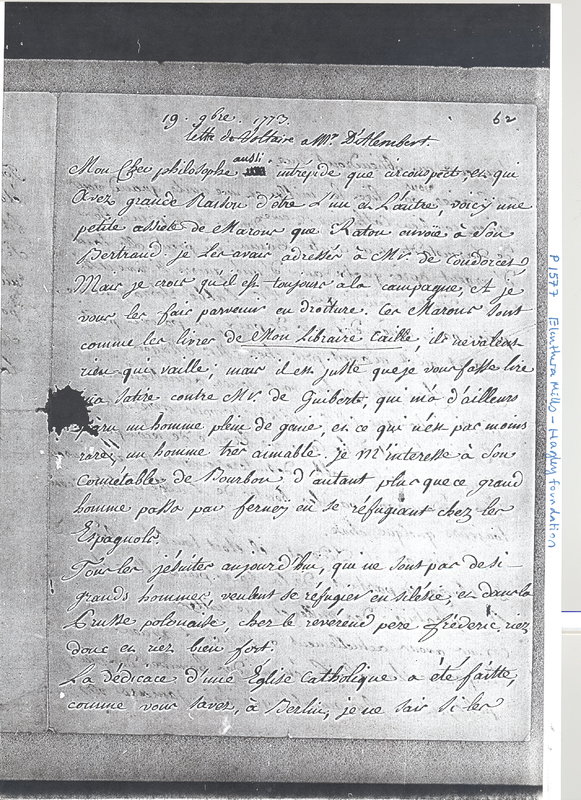 19. 9bre. 1773.
62
lettre de Voltaire a Mr. D'Alembert.
Mon Cher philosophe aussi intrepide que circonspect et qui
Avez grande Raison d'être L'un et L'autre, voicy une
petite assiete de Marons que Raton envoïe à Son
Bertrand. je Les avais adressés à Mr. de Condorcet,
Mais je crois qu'il est toujours à la campagne, et je
vous les fais parvenir en droiture. Ces Marons Sont
comme les livres de Mon Libraire Caille, ils ne valent
rien qui vaille; mais il est juste que je vous fasse lire
ma Satire contre Mr. de Guibert, qui m'a d'ailleurs
paru un homme plein de genie, et ce qui n'est pas moins
rare, un homme très aimable. je M'interesse à Son
Connétable de Bourbon d'autant plus que ce grand
homme passa par ferney en se réfugiant chez les
Espagnols.
Tous les jésuites aujourd'hui, qui ne sont pas de si
grands hommes, veulent se réfugier en silésie, et dans la
Prusse polonaise, chez le revérend pere frédéric. riez
donc et riez bien fort.
La dédicace d'une Eglise Catholique a été faitte,
comme vous savez, à Berlin, je ne sais si les
P 1577 Eleuthera Mills - Hagley Foundation